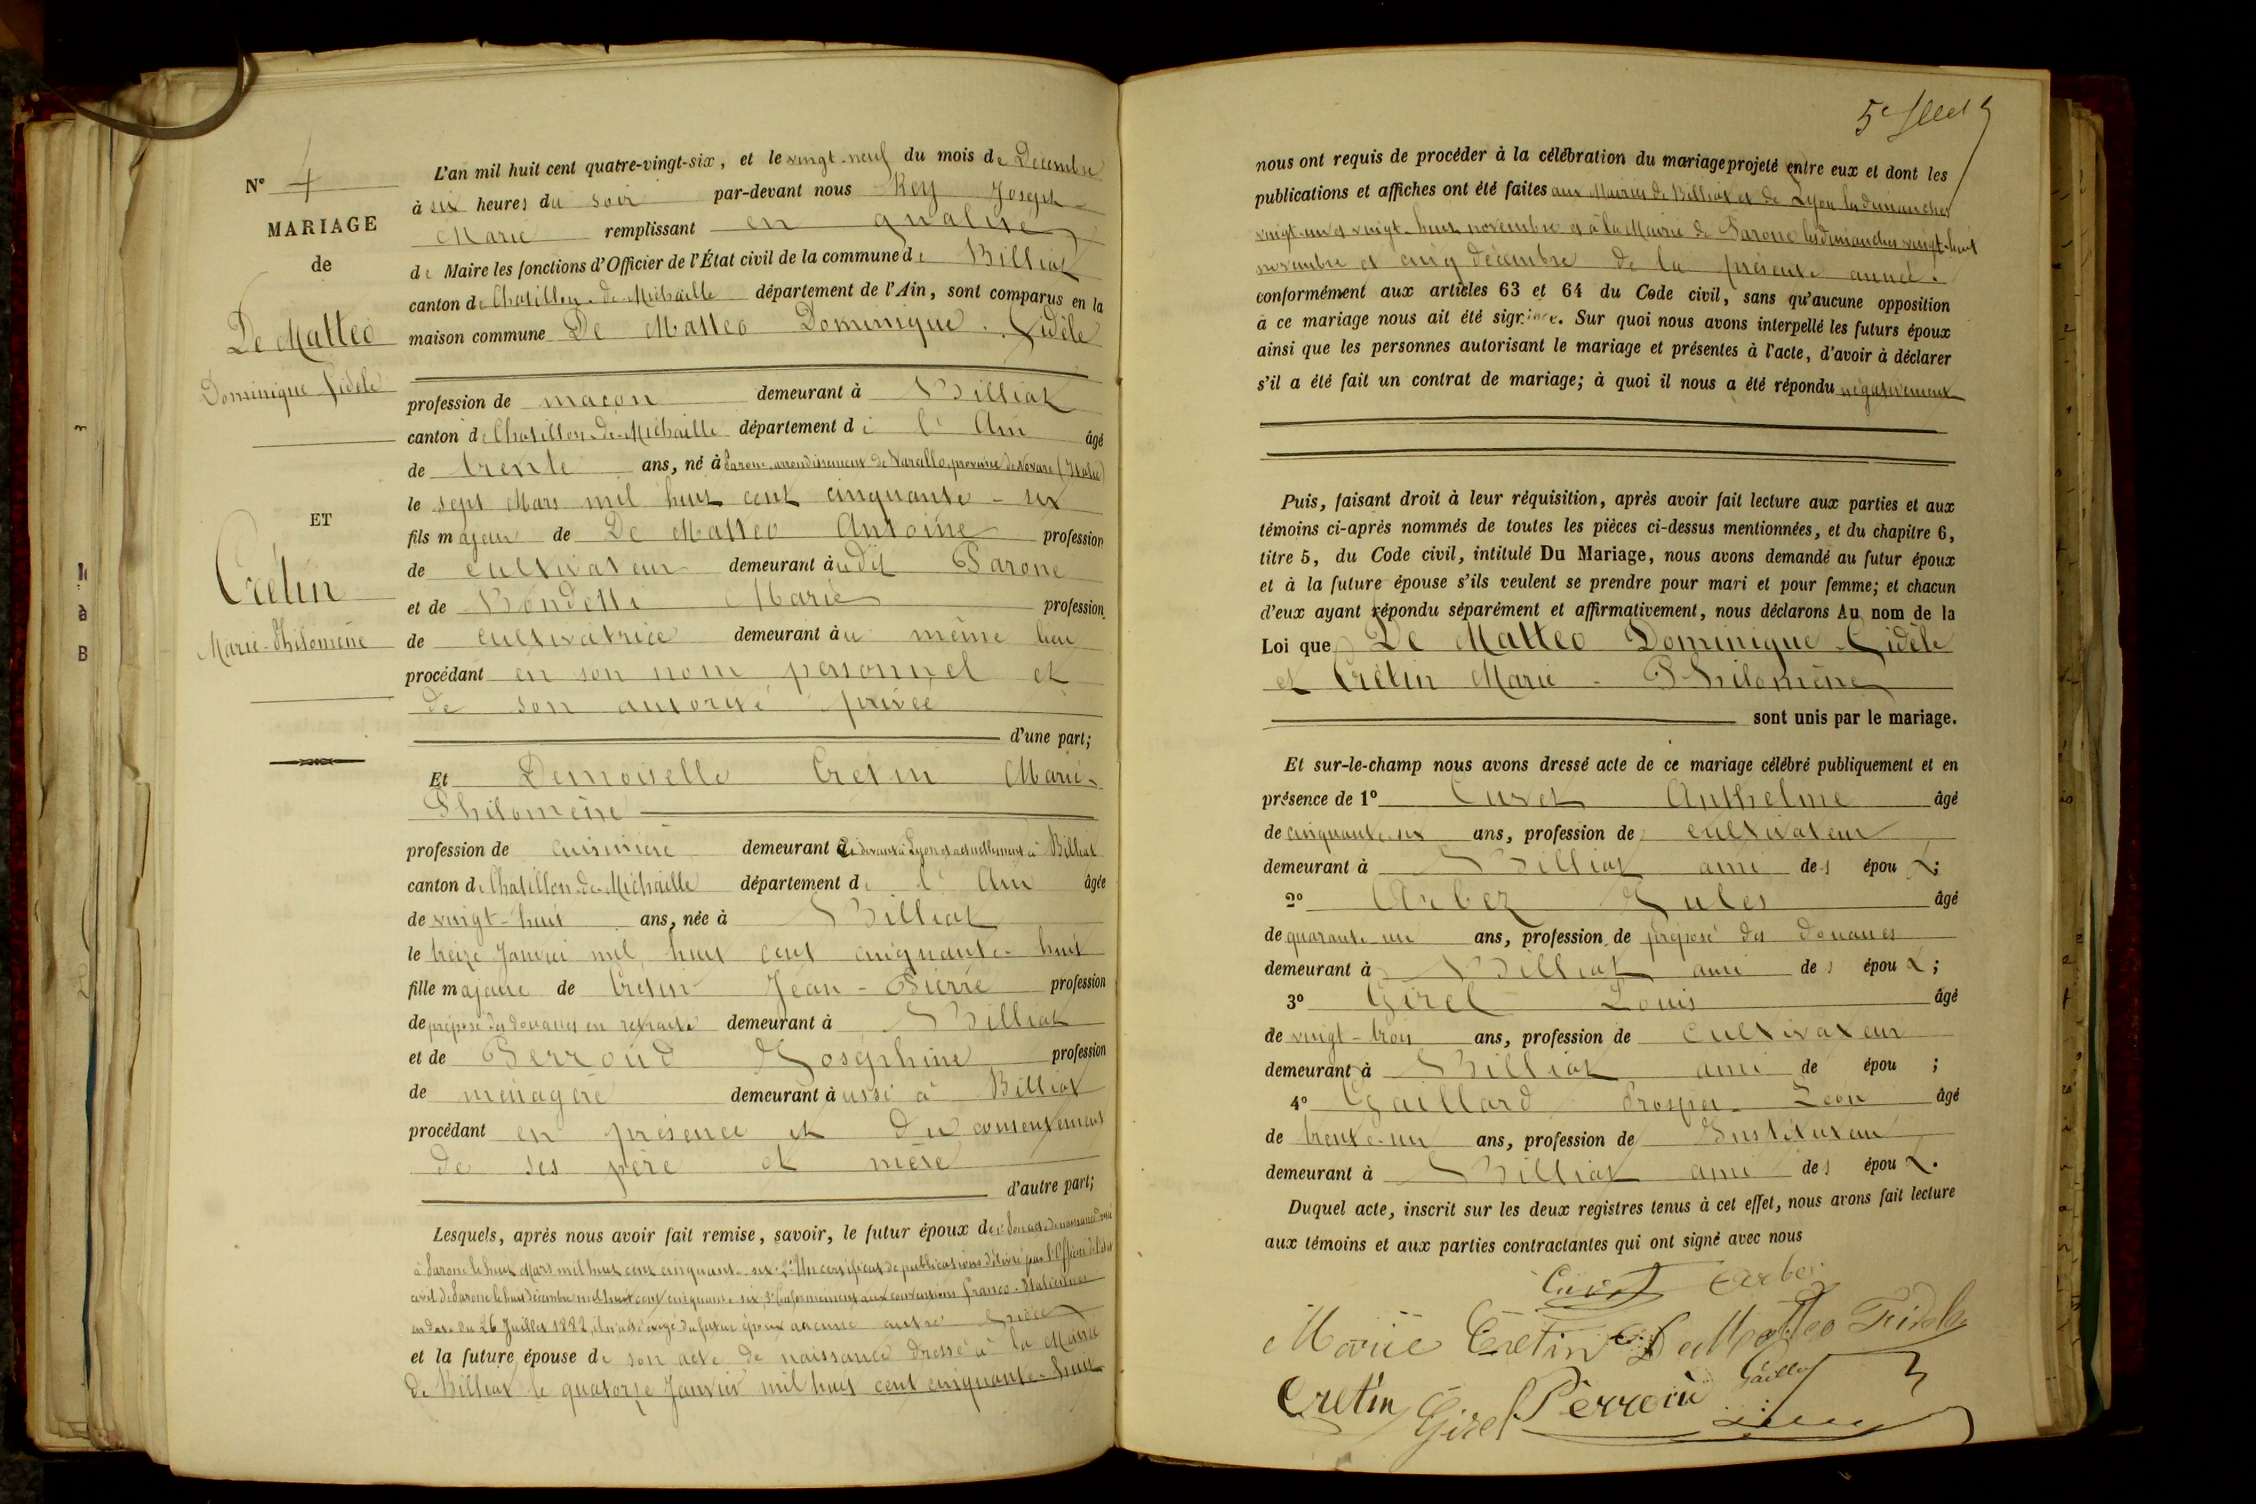 N° 4
MARIAGE
de
De Matteo
Dominique Fidèle
ET
Crétin
Marie-Philomène
L'an mil huit cent quatre-vingt-six, et le vingt-neuf du mois de Décembre
à six heures du soir par-devant nous Rey Joseph
Marie remplissant en qualité
de Maire les fonctions d'Officier de l'État civil de la commune de Billiat
canton de Chatillon-de-Michaille département de l'Ain, sont comparus en la
maison commune De Matteo Dominique Fidèle
profession de maçon demeurant à Billiat
canton de Chatillon-de-Michaille département de l'Ain âgé
de trente ans, né à Parone arrondissement de Varallo, province de Novare (Italie)
le sept Mars mil huit cent cinquante-six
fils majeur de De Matteo Antoine profession
de cultivateur demeurant audit Parone
et de Bondetti Marie profession
de cultivatrice demeurant au même lieu
procédant en son nom personnel et
de son autorité privée
d'une part;
Et Demoiselle Cretin Marie-
Philomène
profession de cuisinière demeurant ci-devant à Lyon et actuellement à Billiat
canton de Chatillon-de-Michaille département de l'Ain âgée
de vingt-huit ans, née à Billiat
le treize Janvier mil huit cent cinquante-huit
fille majeure de Cretin Jean-Pierre profession
de préposé des douanes en retraite demeurant à Billiat
et de Perroud Joséphine profession
de ménagère demeurant aussi à Billiat
procédant en présence et du consentement
de ses père et mère
d'autre part;
Lesquels, après nous avoir fait remise, savoir, le futur époux de 1° Son acte de naissance dressé
à Parone le huit Mars mil huit cent cinquante-six 2° Un certificat de publications délivré par l'Officier de l'état
civil de Parone le huit décembre mil huit cent cinquante six 3° Conformément aux conventions franco-italiennes
en date du 26 Juillet 1882, il n'a été exigé du futur époux aucune autre pièce
et la future épouse de son acte de naissance dressé à la Mairie
de Billiat le quatorze Janvier mil huit cent cinquante-huit
5e
nous ont requis de procéder à la célébration du mariage projeté entre eux et dont les
publications et affiches ont été faites aux Mairies de Billiat et de Lyon les dimanches
vingt-un et vingt-huit novembre et à la Mairie de Parone les dimanches vingt-huit
novembre et cinq décembre de la présente année.
conformément aux articles 63 et 64 du Code civil, sans qu'aucune opposition
à ce mariage nous ait été signifiée. Sur quoi nous avons interpellé les futurs époux
ainsi que les personnes autorisant le mariage et présentes à l'acte, d'avoir à déclarer
s'il a été fait un contrat de mariage; à quoi il nous a été répondu négativement
Puis, faisant droit à leur réquisition, après avoir fait lecture aux parties et aux
témoins ci-après nommés de toutes les pièces ci-dessus mentionnées, et du chapitre 6,
titre 5, du Code civil, intitulé Du Mariage, nous avons demandé au futur époux
et à la future épouse s'ils veulent se prendre pour mari et pour femme; et chacun
d'eux ayant répondu séparément et affirmativement, nous déclarons Au nom de la
Loi que De Matteo Dominique-Fidèle
et Crétin Marie-Philomène
sont unis par le mariage.
Et sur-le-champ nous avons dressé acte de ce mariage célébré publiquement et en
présence de 1° Curet Anthelme âgé
de cinquante-six ans, profession de cultivateur
demeurant à Billiat ami des époux;
2° Arbez Jules âgé
de quarante-un ans, profession de préposé des douanes
demeurant à Billiat ami des époux;
3° Girel Louis âgé
de vingt-trois ans, profession de cultivateur
demeurant à Billiat ami de épou ;
4° Gaillard Prosper-Léon âgé
de trente-un ans, profession de Instituteur
demeurant à Billiat ami des époux.
Duquel acte, inscrit sur les deux registres tenus à cet effet, nous avons fait lecture
aux témoins et aux parties contractantes qui ont signé avec nous
Curet Arbez
Marie Cretin De Matteo Fidele
Cretin Girel Perroud Gaillard